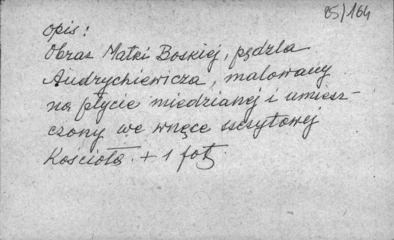 85/164
opis:
Obraz Matki Boskiej, pędzla
Andrychiewicza, malowany
na płycie miedzianej i umiesz-
czony we wnęce szczytowej
Kościoła. + 1 fot.